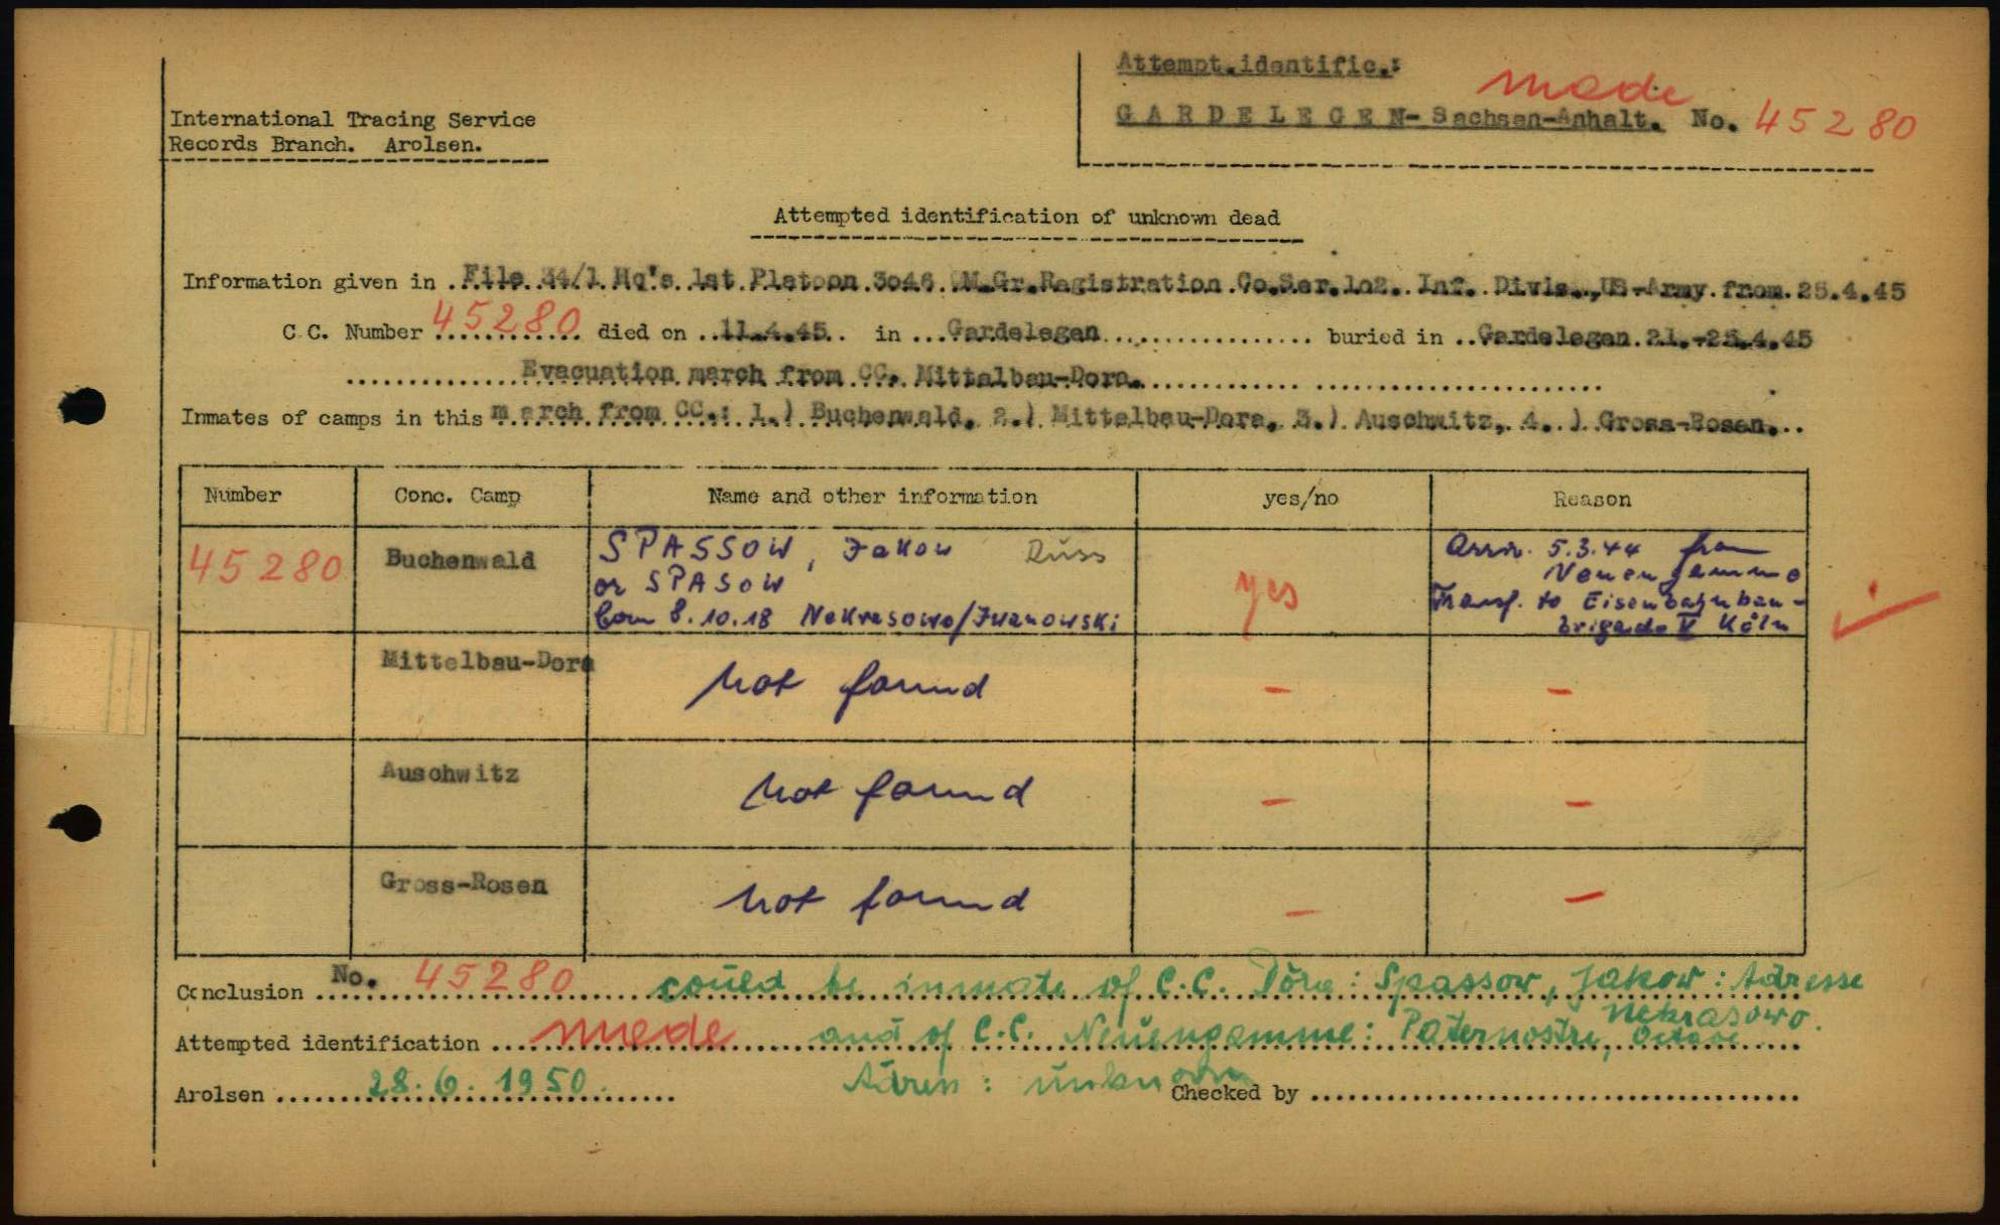 Attempt.identific.:
made
GARDELEGEN-Sachsen-Anhalt. No. 45280
International Tracing Service
Records Branch. Arolsen.
Attempted identification of unknown dead
Information given in .File 34/1 Hq's 1st Platoon 3046 QM.Gr.Registration Co.Ser.102. Inf. Divis., US-Army from 25.4.45
C.C. Number 45280 died on ..11.4.45.. in ...Gardelegen................ buried in ..Gardelegen 21.-25.4.45
Evacuation march from CC. Mittelbau-Dora.
Inmates of camps in this march from CC.: 1.) Buchenwald, 2.) Mittelbau-Dora, 3.) Auschwitz, 4.) Gross-Rosen...
Number Conc. Camp Name and other information yes/no Reason
45280 Buchenwald SPASSOW, Jakow Russ
or SPASOW
born 8.10.18 Nekrasowo/Iwanowski
yes
Arriv. 5.3.44 from
Neuengamme
Transf. to Eisenbahnbau-
brigade V Köln
Mittelbau-Dora not found - -
Auschwitz not found - -
Gross-Rosen not found - -
Conclusion No. 45280 could be inmate of C.C. Dora: Spassow, Jakow: Adresse
Nekrasowo.
Attempted identification ... made ... and of C.C. Neuengamme: Paternostre, Octave
Arolsen ... 28.6.1950. Adress: unknown Checked by ...